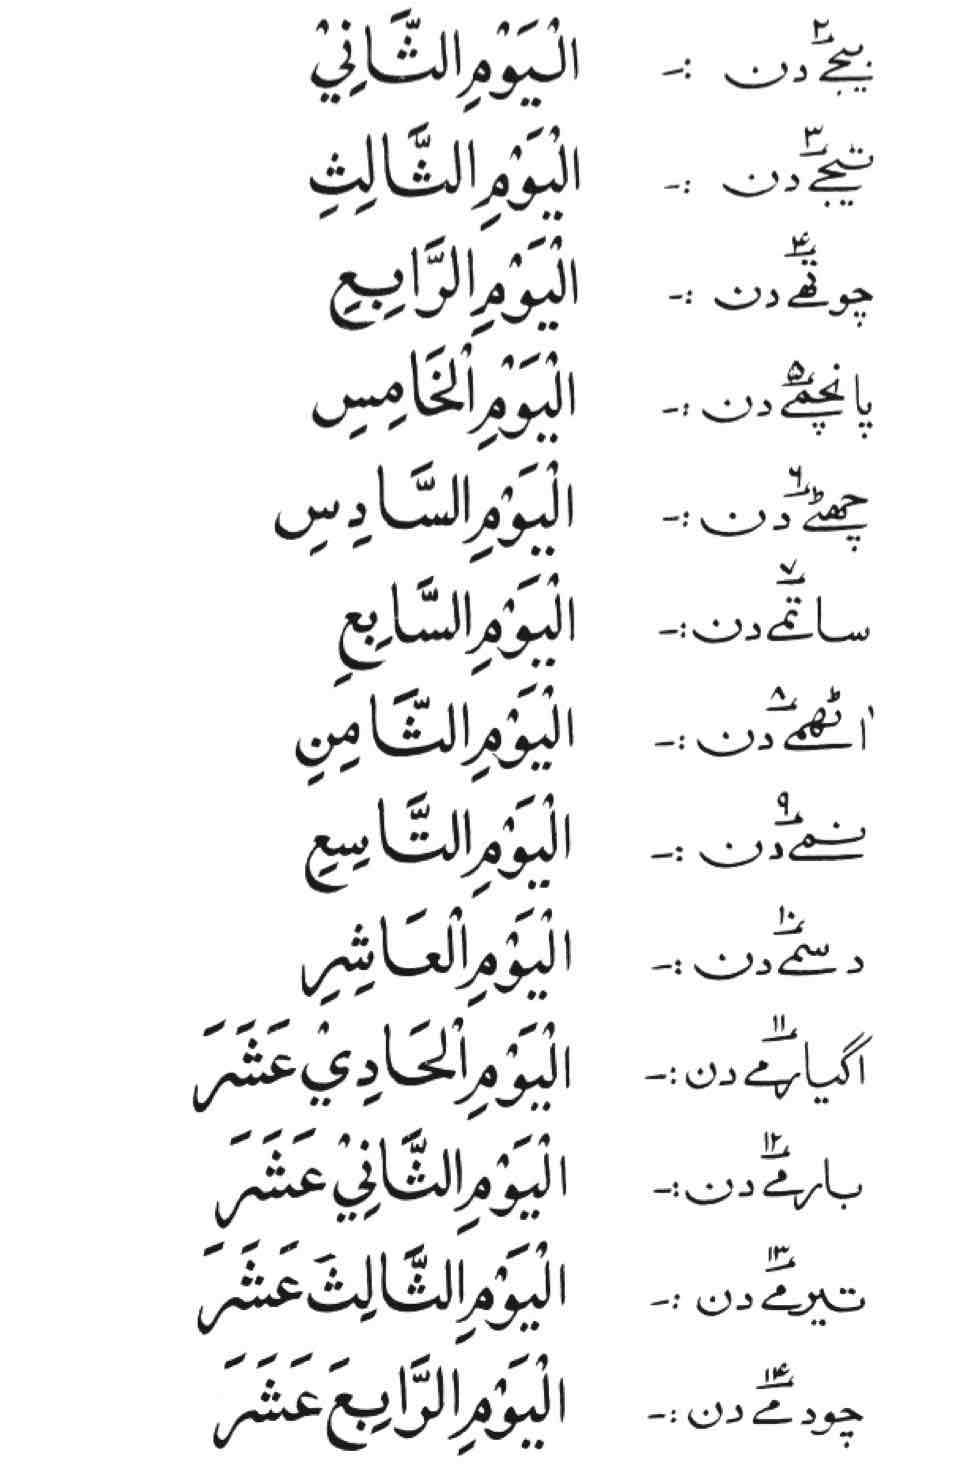 بيجے٢ دن :- الْيَوْمِ الثَّانِيْ
تيجے٣ دن :- الْيَوْمِ الثَّالِثِ
چوتھے۴ دن :- الْيَوْمِ الرَّابِعِ
پانچمے۵ دن :- الْيَوْمِ الْخَامِسِ
چھٹے۶ دن :- الْيَوْمِ السَّادِسِ
ساتمے٧ دن :- الْيَوْمِ السَّابِعِ
اٹھمے٨ دن :- الْيَوْمِ الثَّامِنِ
نمے٩ دن :- الْيَوْمِ التَّاسِعِ
دسمے١٠ دن :- الْيَوْمِ الْعَاشِرِ
اگيارمے١١ دن :- الْيَوْمِ الْحَادِيْ عَشَرَ
بارمے١٢ دن :- الْيَوْمِ الثَّانِيْ عَشَرَ
تيرمے١٣ دن :- الْيَوْمِ الثَّالِثَ عَشَرَ
چودمے١۴ دن :- الْيَوْمِ الرَّابِعَ عَشَرَ